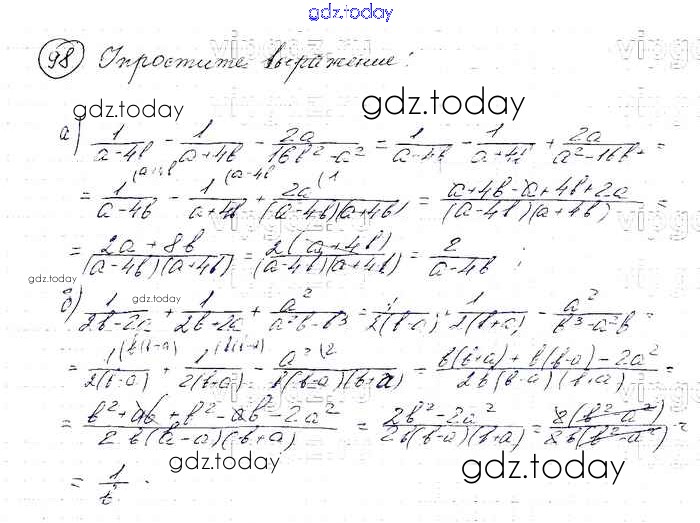 gdz.today
98 Упростите выражение:
gdz.today gdz.today
а) 1/(a-4b) - 1/(a+4b) - 2a/(16b²-a²) = 1/(a-4b) - 1/(a+4b) + 2a/(a²-16b²) =
= 1/(a-4b) (a+4b - 1/(a+4b) (a-4b + 2a/((a-4b)(a+4b)) (1 = (a+4b-a+4b+2a)/((a-4b)(a+4b)) =
= (2a+8b)/((a-4b)(a+4b)) = 2(a+4b)/((a-4b)(a+4b)) = 2/(a-4b) ;
gdz.today gdz.today
б) 1/(2b-2a) + 1/(2b+2a) + a²/(a²b-b³) = 1/(2(b-a)) + 1/(2(b+a)) - a²/(b³-a²b) =
= 1/(2(b-a)) + 1/(2(b+a)) - a²/(b(b-a)(b+a)) (2 = (b(b+a)+b(b-a)-2a²)/(2b(b-a)(b+a)) =
= (b²+ab+b²-ab-2a²)/(2b(b-a)(b+a)) = (2b²-2a²)/(2b(b-a)(b+a)) = 2(b²-a²)/(2b(b²-a²)) =
gdz.today gdz.today
= 1/b .